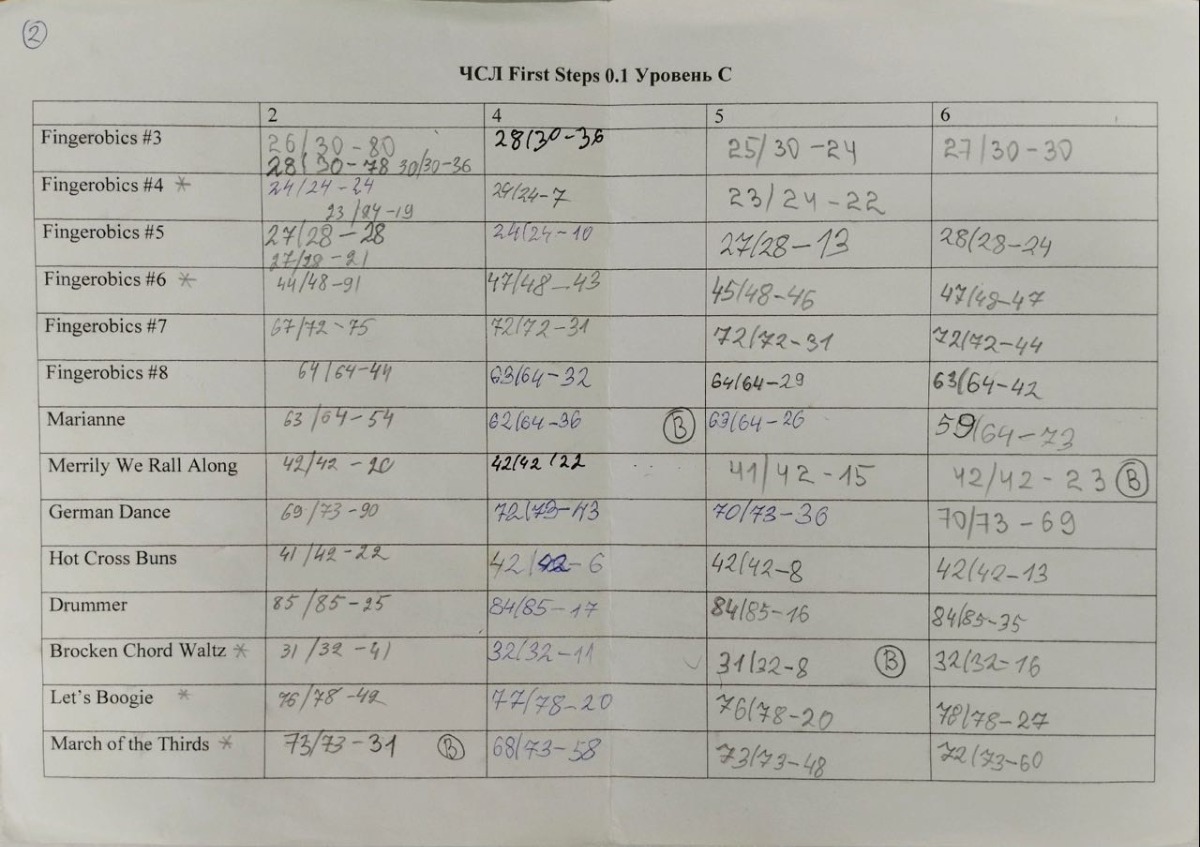 2
ЧСЛ First Steps 0.1 Уровень С
2 4 5 6
Fingerobics #3 26/30-80 28/30-36 25/30-24 27/30-30
28/30-78 30/30-36
Fingerobics #4 * 24/24-24 24/24-7 23/24-22
23/24-19
Fingerobics #5 27/28-28 24/24-10 27/28-13 28/28-24
27/28-21
Fingerobics #6 * 44/48-91 47/48-43 45/48-46 47/48-47
Fingerobics #7 67/72-75 72/72-31 72/72-31 72/72-44
Fingerobics #8 64/64-44 63/64-32 64/64-29 63/64-42
Marianne 63/64-54 62/64-36 B 63/64-26 59/64-73
Merrily We Rall Along 42/42-20 42/42/22 41/42-15 42/42-23 B
German Dance 69/73-90 72/73-43 70/73-36 70/73-69
Hot Cross Buns 41/42-22 42/42-6 42/42-8 42/42-13
Drummer 85/85-25 84/85-17 84/85-16 84/85-35
Brocken Chord Waltz * 31/32-41 32/32-11 31/32-8 B 32/32-16
Let's Boogie * 76/78-42 77/78-20 76/78-20 78/78-27
March of the Thirds * 73/73-31 B 68/73-58 73/73-48 72/73-60